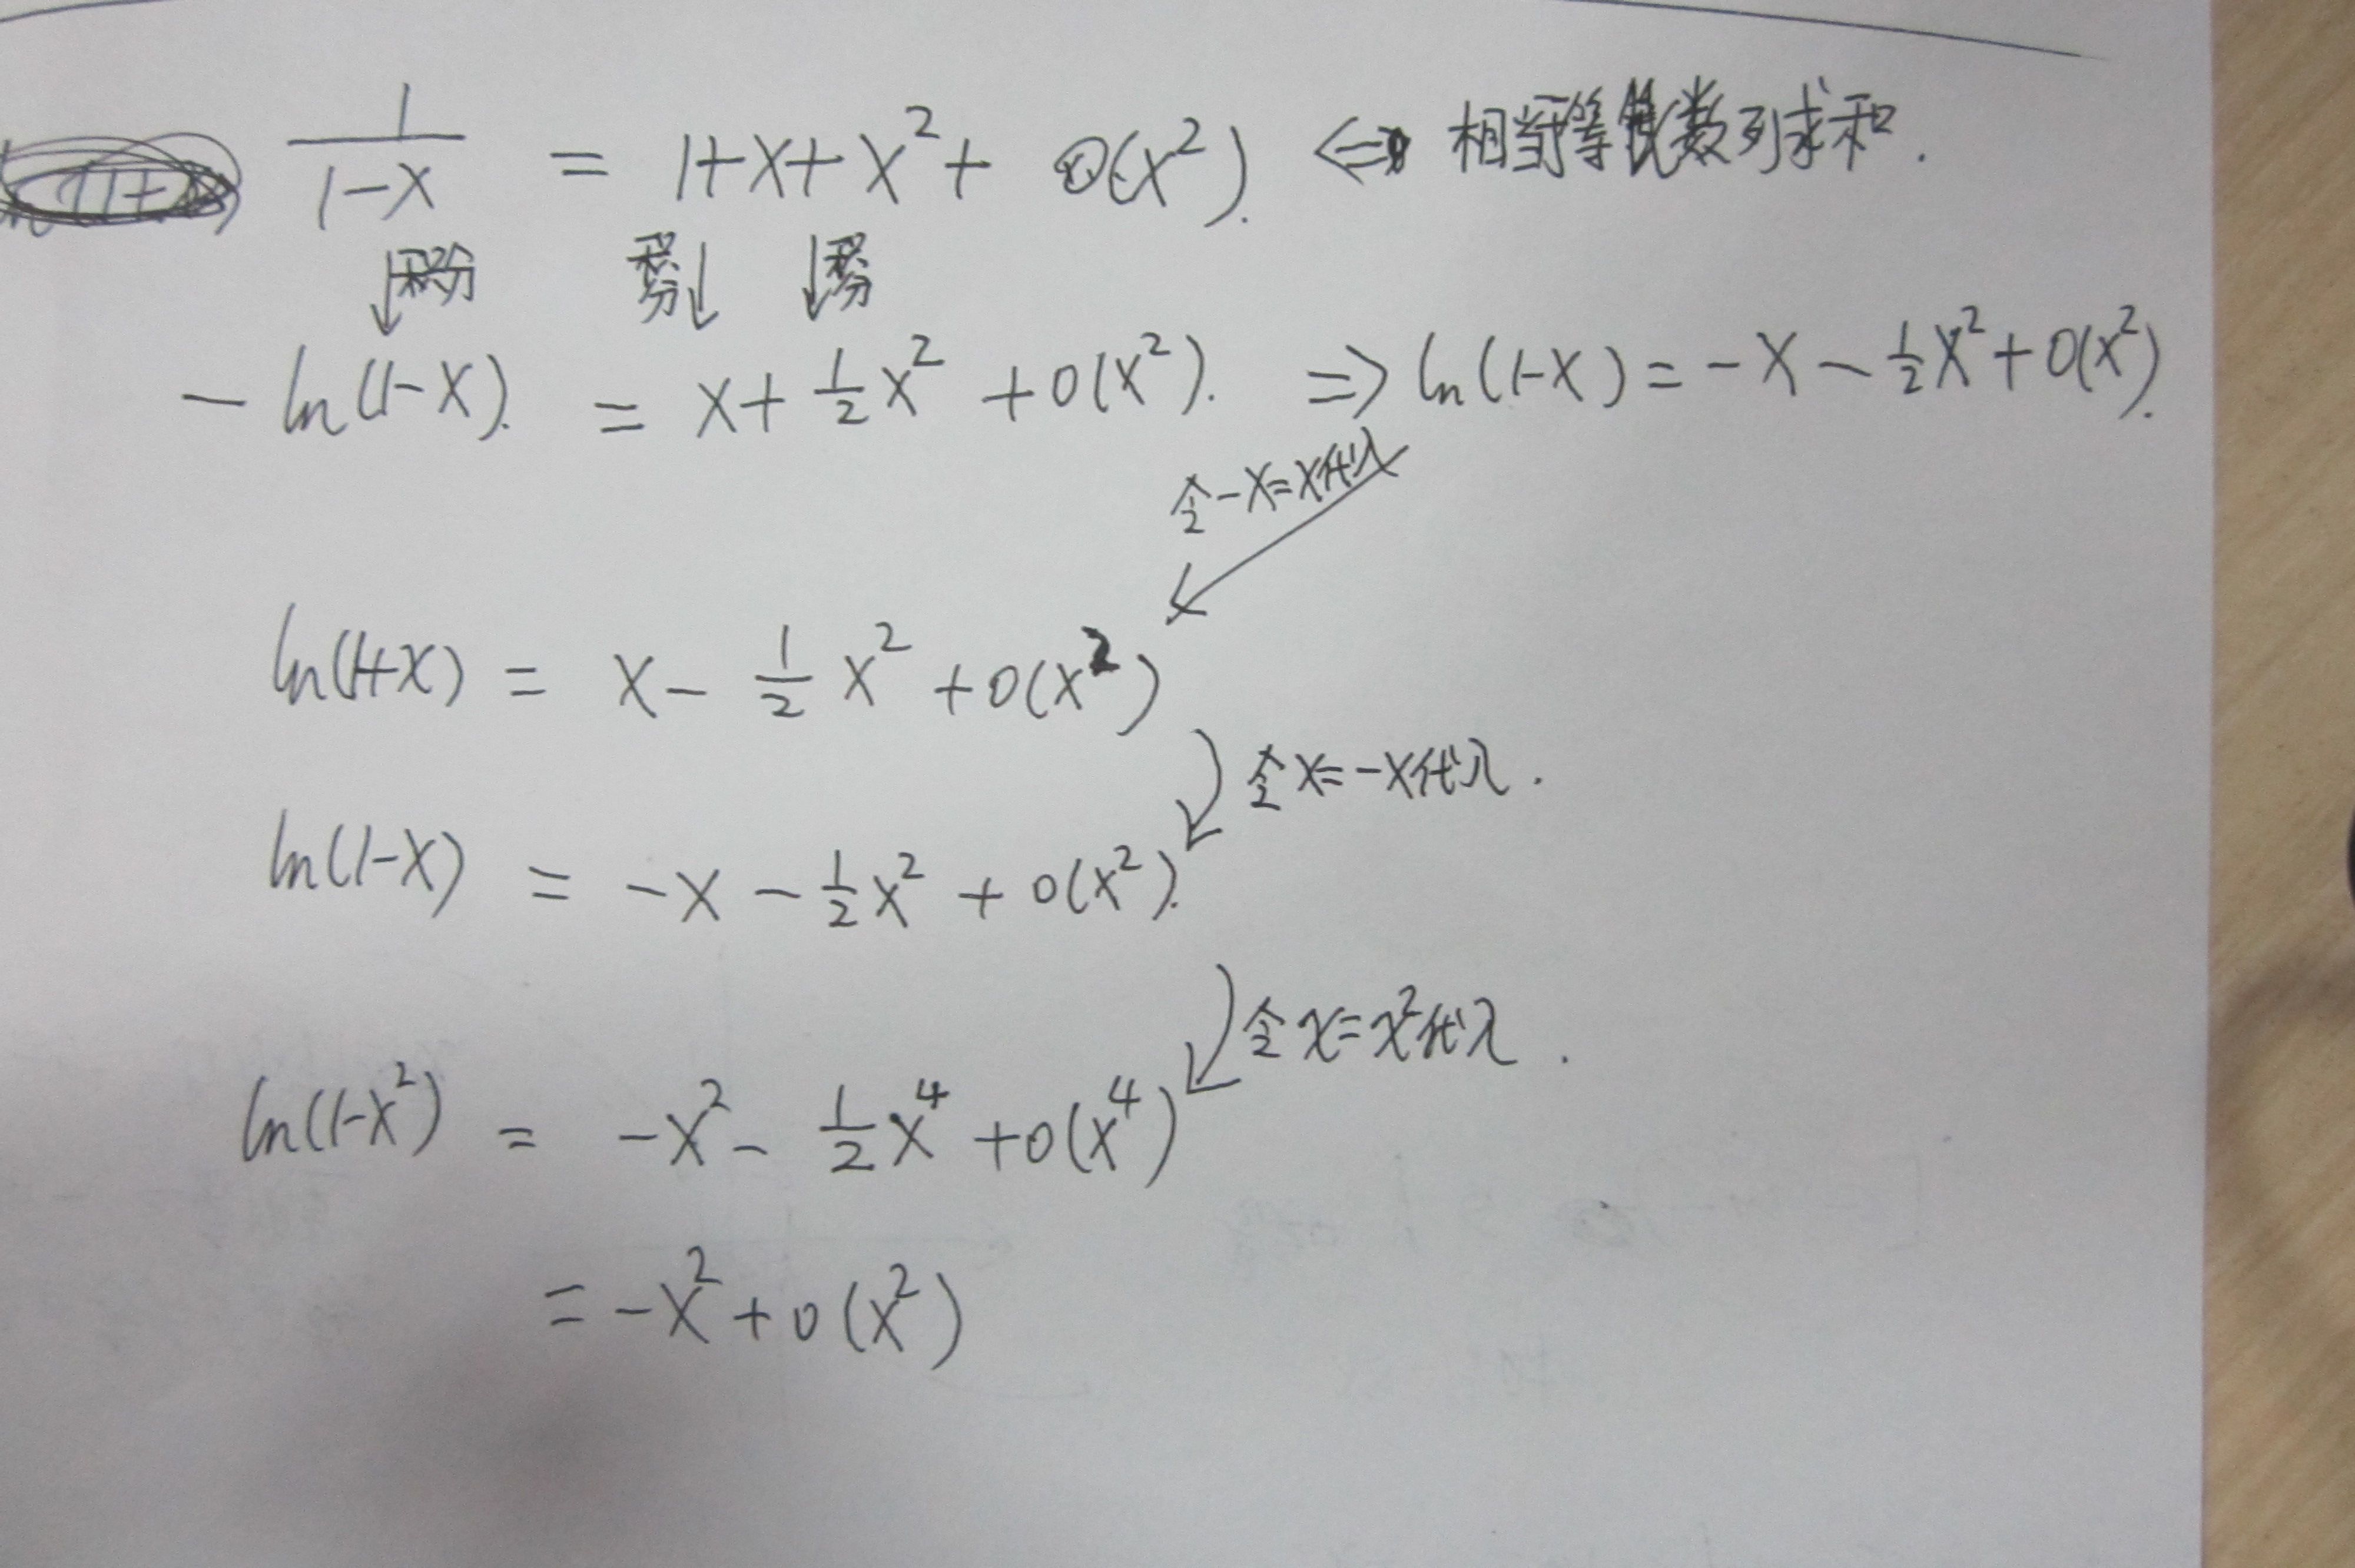 1/(1-x) = 1+x+x²+o(x²). ⇔ 相当于等比数列求和.
↓积分 积分↓ ↓积分
-ln(1-x). = x+½x²+o(x²). ⇒ ln(1-x)=-x-½x²+o(x²).
令-x=x代入
ln(1+x) = x-½x²+o(x²)
令x=-x代入.
ln(1-x) = -x-½x²+o(x²).
令x=x²代入.
ln(1-x²) = -x²-½x⁴+o(x⁴)
=-x²+o(x²)